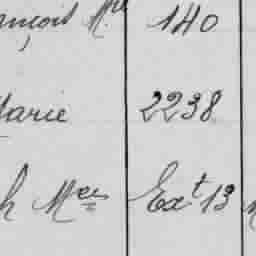 ançois Mel 140
Marie 2238
h Mees Ext 13